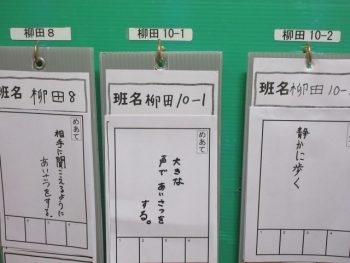 柳田8
柳田10-1
柳田10-2
班名 柳田8
めあて
相手に聞こえるように
あいさつをする。
班名 柳田10-1
めあて
大きな
声であいさつを
する。
班名 柳田10-
めあて
静かに歩く